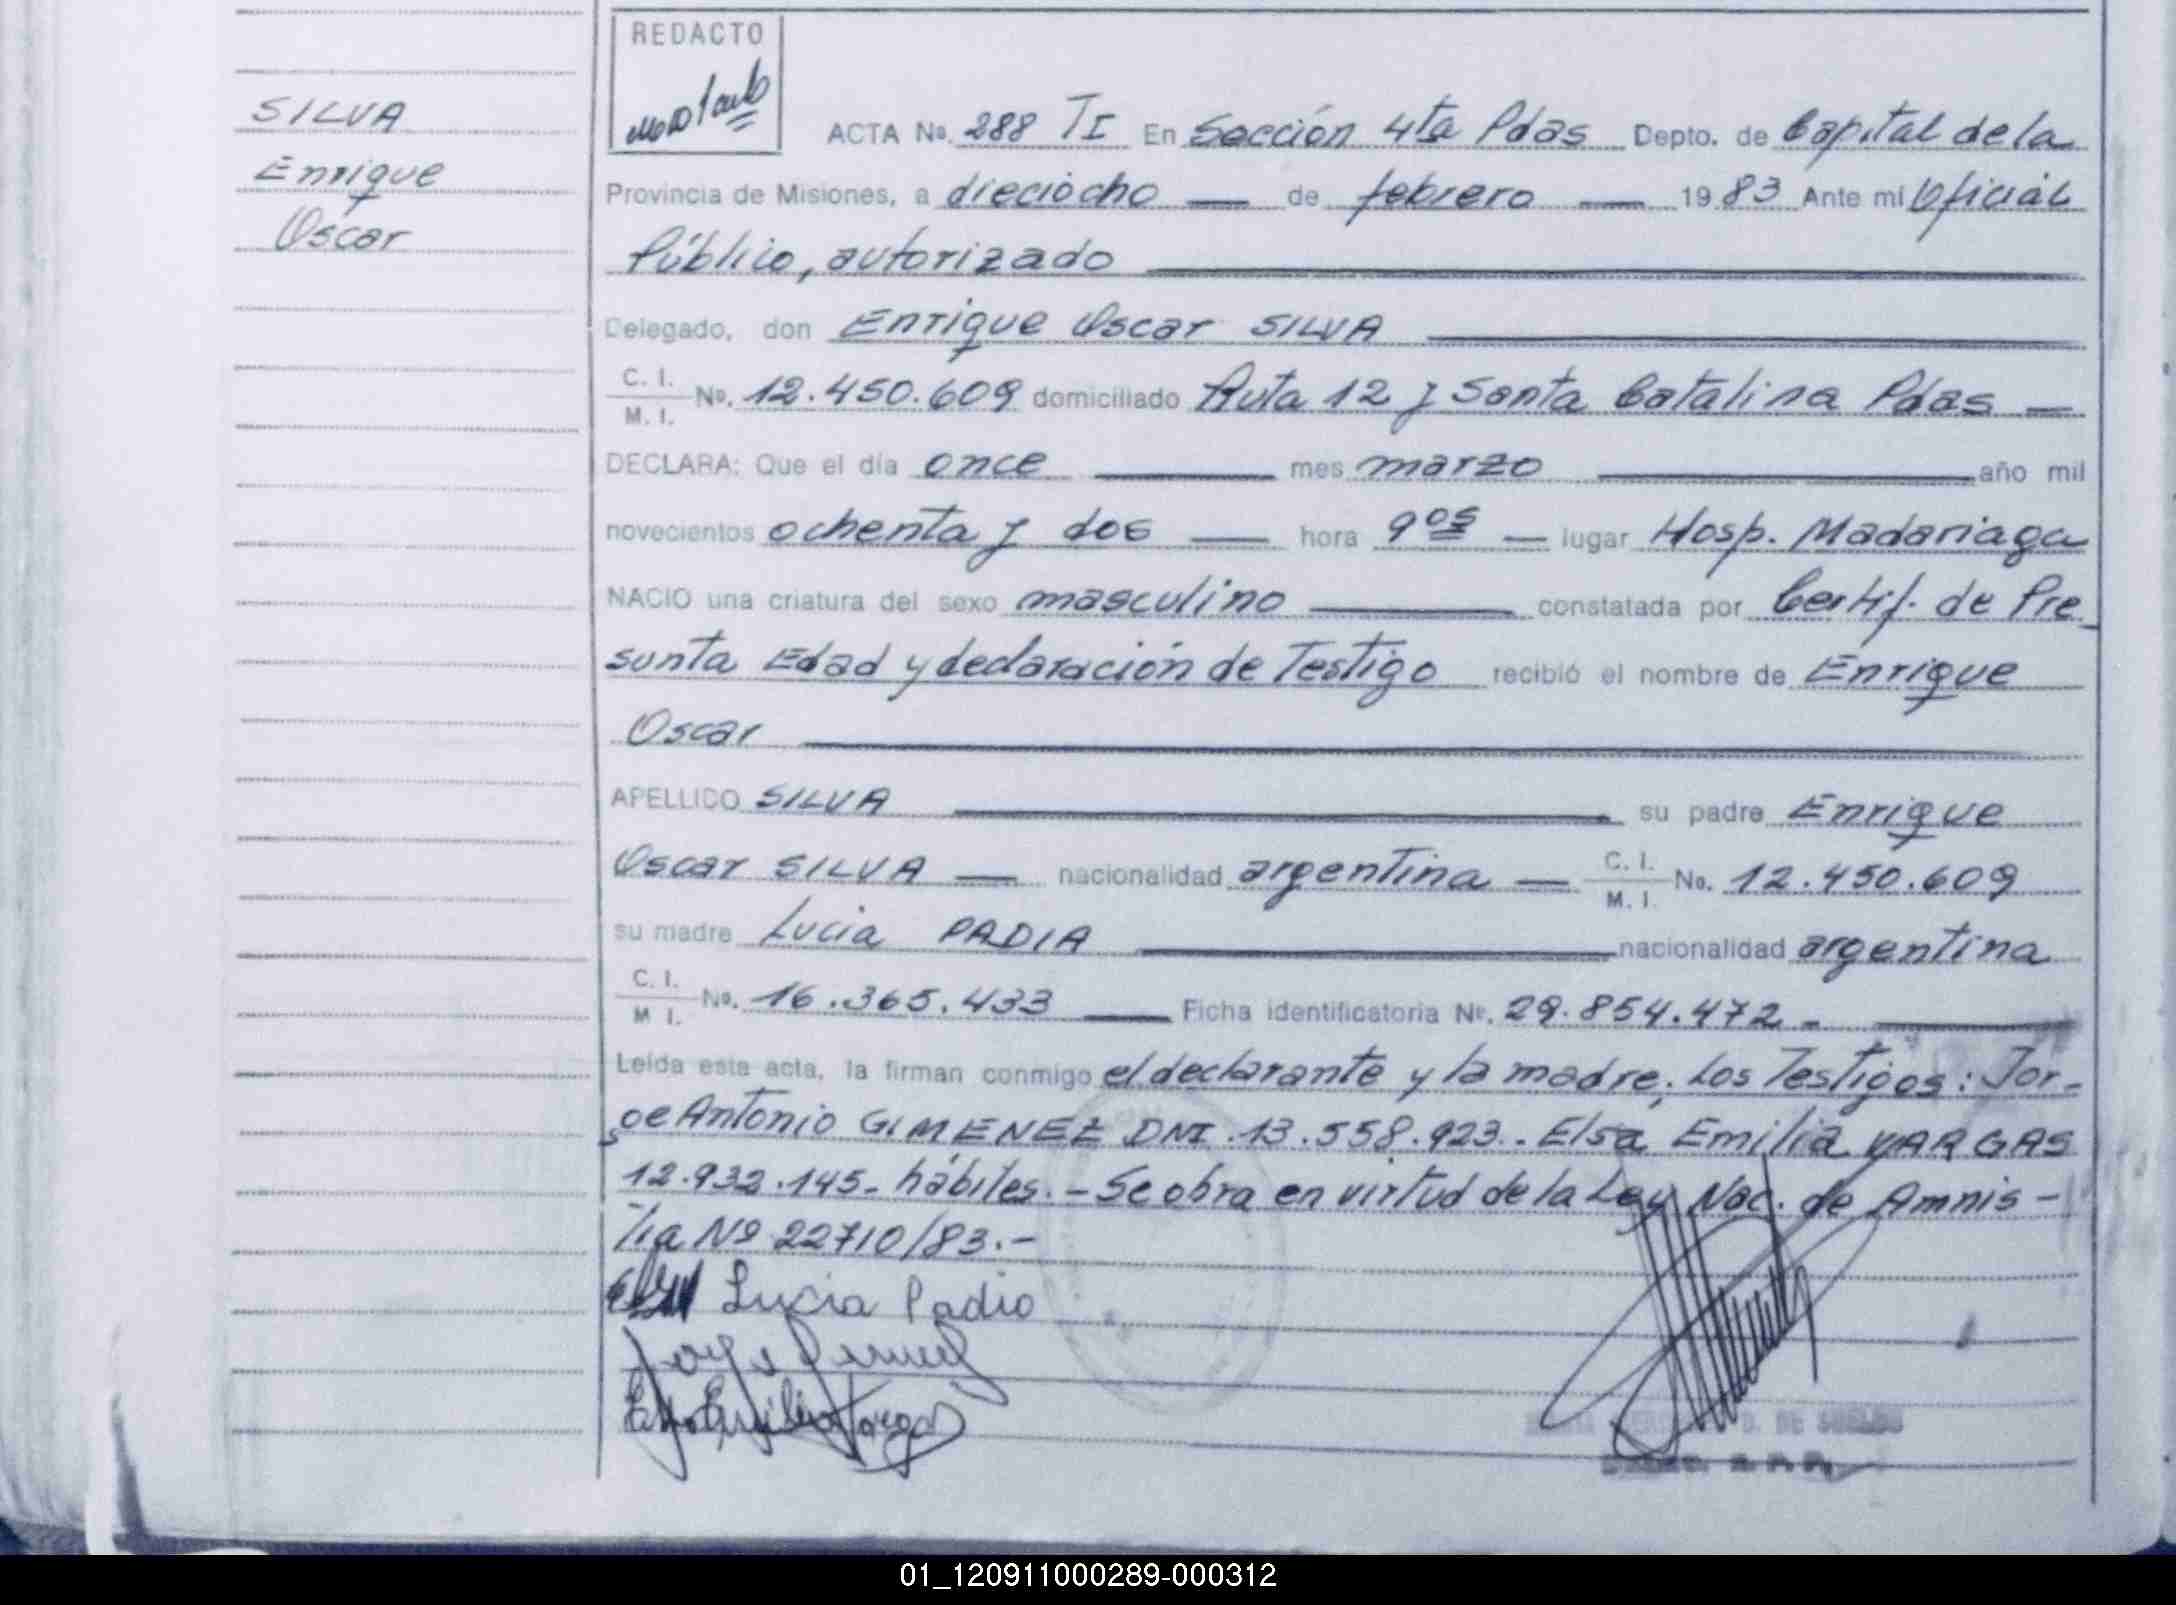 REDACTO
SILVA
Enrique
Oscar
ACTA No. 288 TI En Sección 4ta Pdas Depto. de Capital de la
Provincia de Misiones, a dieciocho — de febrero — 19 83 Ante mi Oficial
Público, autorizado
Delegado, don Enrique Oscar SILVA
C. I. / M. I. No. 12.450.609 domiciliado Ruta 12 y Santa Catalina Pdas —
DECLARA: Que el día once mes marzo año mil
novecientos ochenta y dos — hora 9 05 — lugar Hosp. Madariaga
NACIO una criatura del sexo masculino constatada por Certif. de Pre-
sunta Edad y declaración de Testigo recibió el nombre de Enrique
Oscar
APELLIDO SILVA su padre Enrique
Oscar SILVA — nacionalidad argentina — C. I. / M. I. No. 12.450.609
su madre Lucia PADIA nacionalidad argentina
C. I. / M I. No. 16.365.433 — Ficha identificatoria No. 29.854.472.-
Leída esta acta, la firman conmigo el declarante y la madre. Los Testigos: Jor-
ge Antonio GIMENEZ DNI 13.558.923.- Elsa Emilia VARGAS
12.932.145- hábiles.- Se obra en virtud de la Ley Nac. de Amnis-
tia Nº 22710/83.-
Lucia Padia
01_120911000289-000312